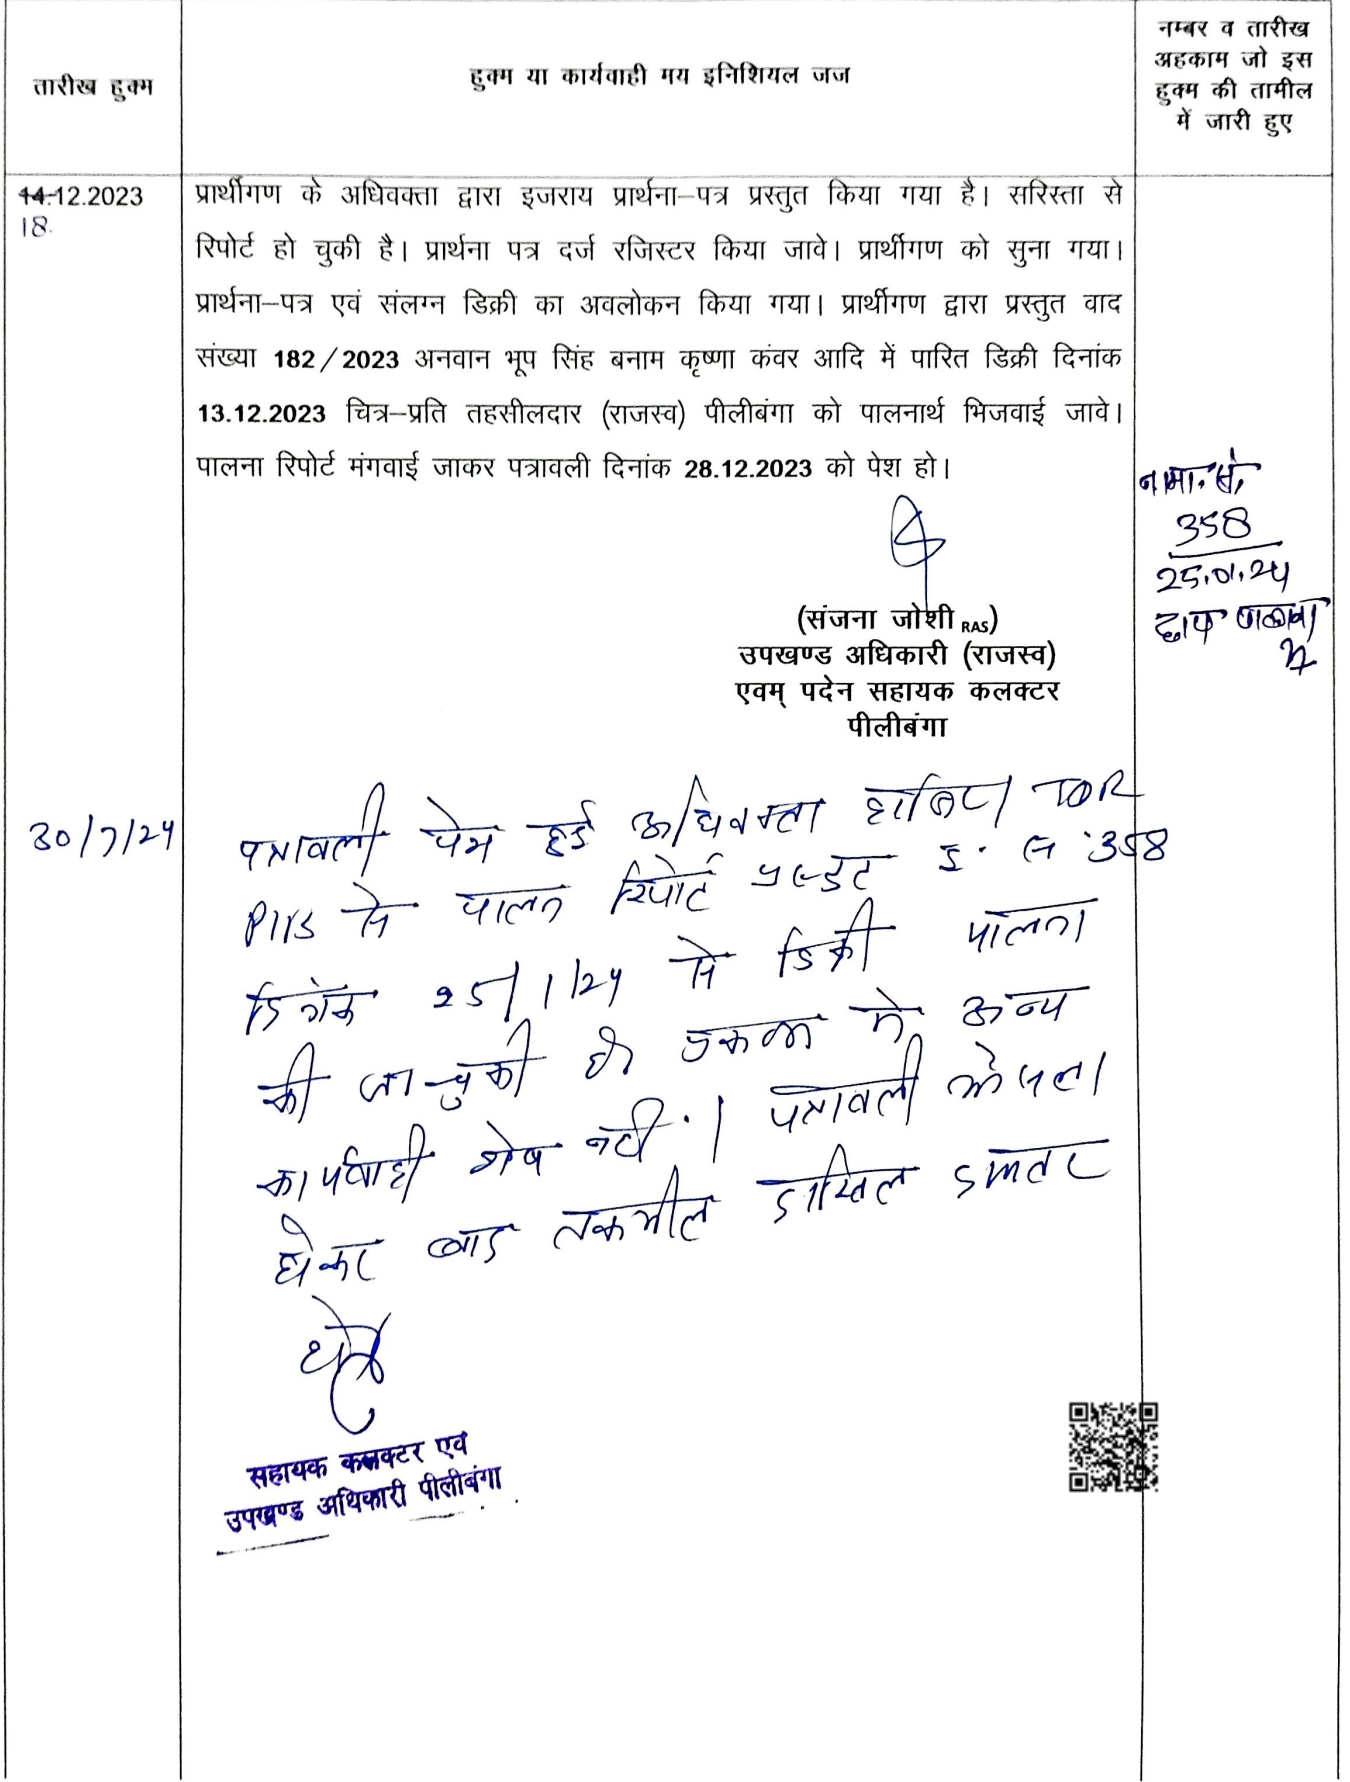 तारीख हुक्म
हुक्म या कार्यवाही मय इनिशियल जज
नम्बर व तारीख
अहकाम जो इस
हुक्म की तामील
में जारी हुए
14.12.2023
18.
प्रार्थीगण के अधिवक्ता द्वारा इजराय प्रार्थना–पत्र प्रस्तुत किया गया है। सरिस्ता से
रिपोर्ट हो चुकी है। प्रार्थना पत्र दर्ज रजिस्टर किया जावे। प्रार्थीगण को सुना गया।
प्रार्थना–पत्र एवं संलग्न डिक्री का अवलोकन किया गया। प्रार्थीगण द्वारा प्रस्तुत वाद
संख्या 182/2023 अनवान भूप सिंह बनाम कृष्णा कंवर आदि में पारित डिक्री दिनांक
13.12.2023 चित्र–प्रति तहसीलदार (राजस्व) पीलीबंगा को पालनार्थ भिजवाई जावे।
पालना रिपोर्ट मंगवाई जाकर पत्रावली दिनांक 28.12.2023 को पेश हो।
नामा. सं.
358
25.01.24
(संजना जोशी RAS)
उपखण्ड अधिकारी (राजस्व)
एवम् पदेन सहायक कलक्टर
पीलीबंगा
30/7/24
पत्रावली पेश हुई अधिवक्ता हाजिर। TDR
PIIB से पालना रिपोर्ट इ. स. 358
दिनांक 25/1/24 से डिक्री पालना
की जा चुकी है। में अन्य
कार्यवाही शेष नहीं। पत्रावली फैसला
होकर बाद तकमील दाखिल दफ्तर
सहायक कलक्टर एवं
उपखण्ड अधिकारी पीलीबंगा